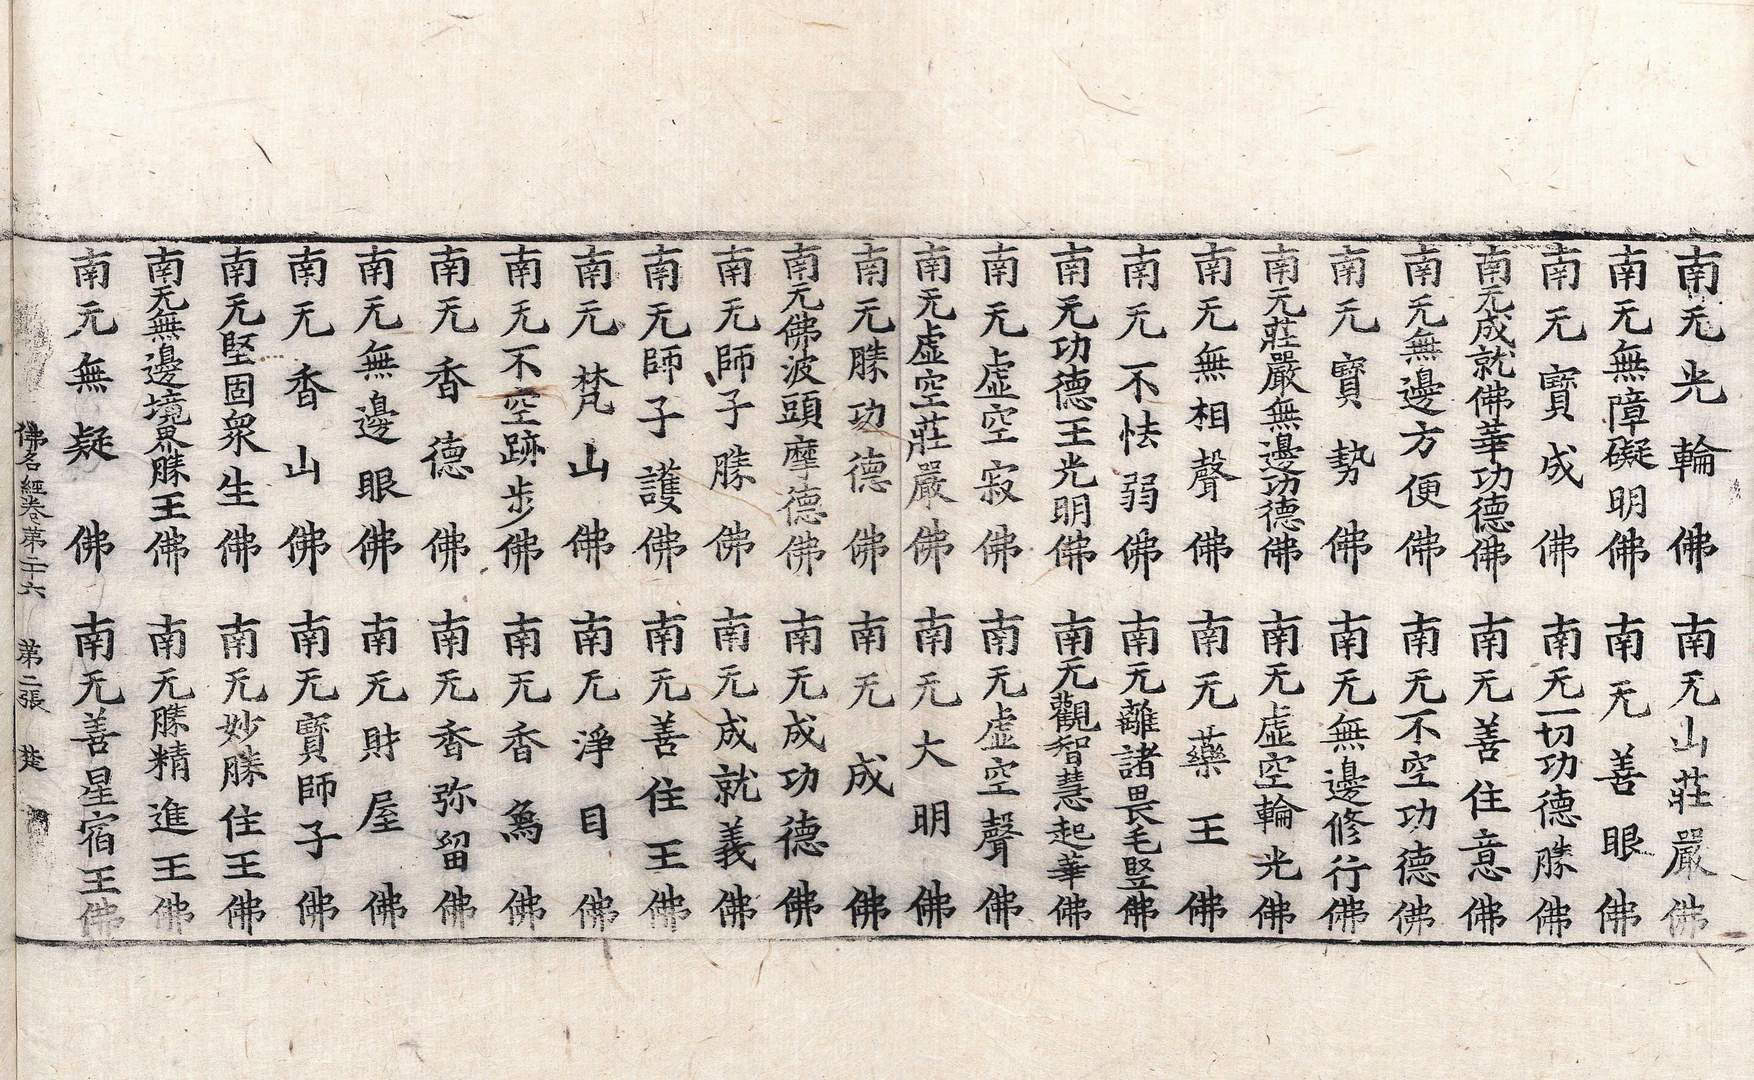 南无光輪佛 南无山莊嚴佛
南无無障礙明佛 南无善眼佛
南无寶成佛 南无一切功德勝佛
南无成就佛華功德佛 南无善住意佛
南无無邊方便佛 南无不空功德佛
南无寶勢佛 南无無邊修行佛
南无莊嚴無邊功德佛 南无虛空輪光佛
南无無相聲佛 南无藥王佛
南无不怯弱佛 南无離諸畏毛竪佛
南无功德王光明佛 南无觀智慧起華佛
南无虛空寂佛 南无虛空聲佛
南无虛空莊嚴佛 南无大明佛
南无勝功德佛 南无成佛
南无佛波頭摩德佛 南无成功德佛
南无師子勝佛 南无成就義佛
南无師子護佛 南无善住王佛
南无梵山佛 南无淨目佛
南无不空跡步佛 南无香爲佛
南无香德佛 南无香弥留佛
南无無邊眼佛 南无財屋佛
南无香山佛 南无寶師子佛
南无堅固衆生佛 南无妙勝住王佛
南无無邊境界勝王佛 南无勝精進王佛
南无無疑佛 南无善星宿王佛
佛名經卷第二十六 第二張 楚